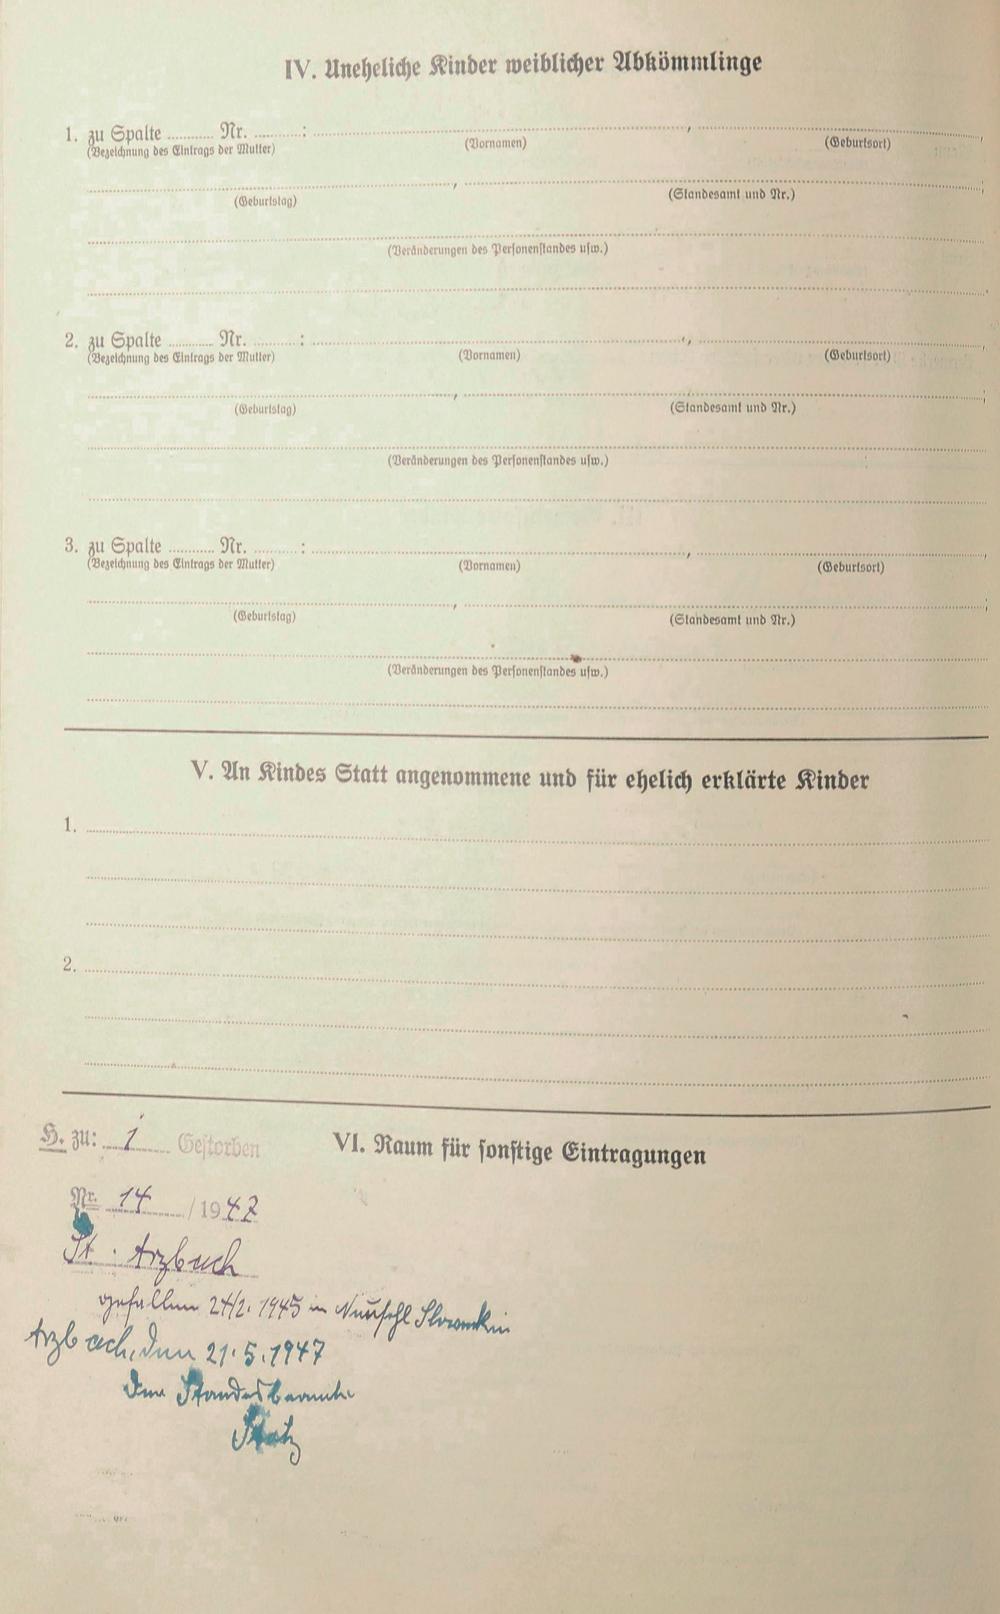 IV. Uneheliche Kinder weiblicher Abkömmlinge
1. zu Spalte .......... Nr. .......... : .................... , ....................
(Bezeichnung des Eintrags der Mutter) (Vornamen) (Geburtsort)
(Geburtstag) (Standesamt und Nr.)
(Veränderungen des Personenstandes usw.)
2. zu Spalte .......... Nr. .......... : .................... , ....................
(Bezeichnung des Eintrags der Mutter) (Vornamen) (Geburtsort)
(Geburtstag) (Standesamt und Nr.)
(Veränderungen des Personenstandes usw.)
3. zu Spalte .......... Nr. .......... : .................... , ....................
(Bezeichnung des Eintrags der Mutter) (Vornamen) (Geburtsort)
(Geburtstag) (Standesamt und Nr.)
(Veränderungen des Personenstandes usw.)
V. An Kindes Statt angenommene und für ehelich erklärte Kinder
1.
2.
VI. Raum für sonstige Eintragungen
H. zu: 1 Gestorben
Nr. 14 / 1947
St. Arzbach
gefallen 24/2. 1945 in Neusohl Slowakei
Arzbach, den 21.5.1947
Der Standesbeamte